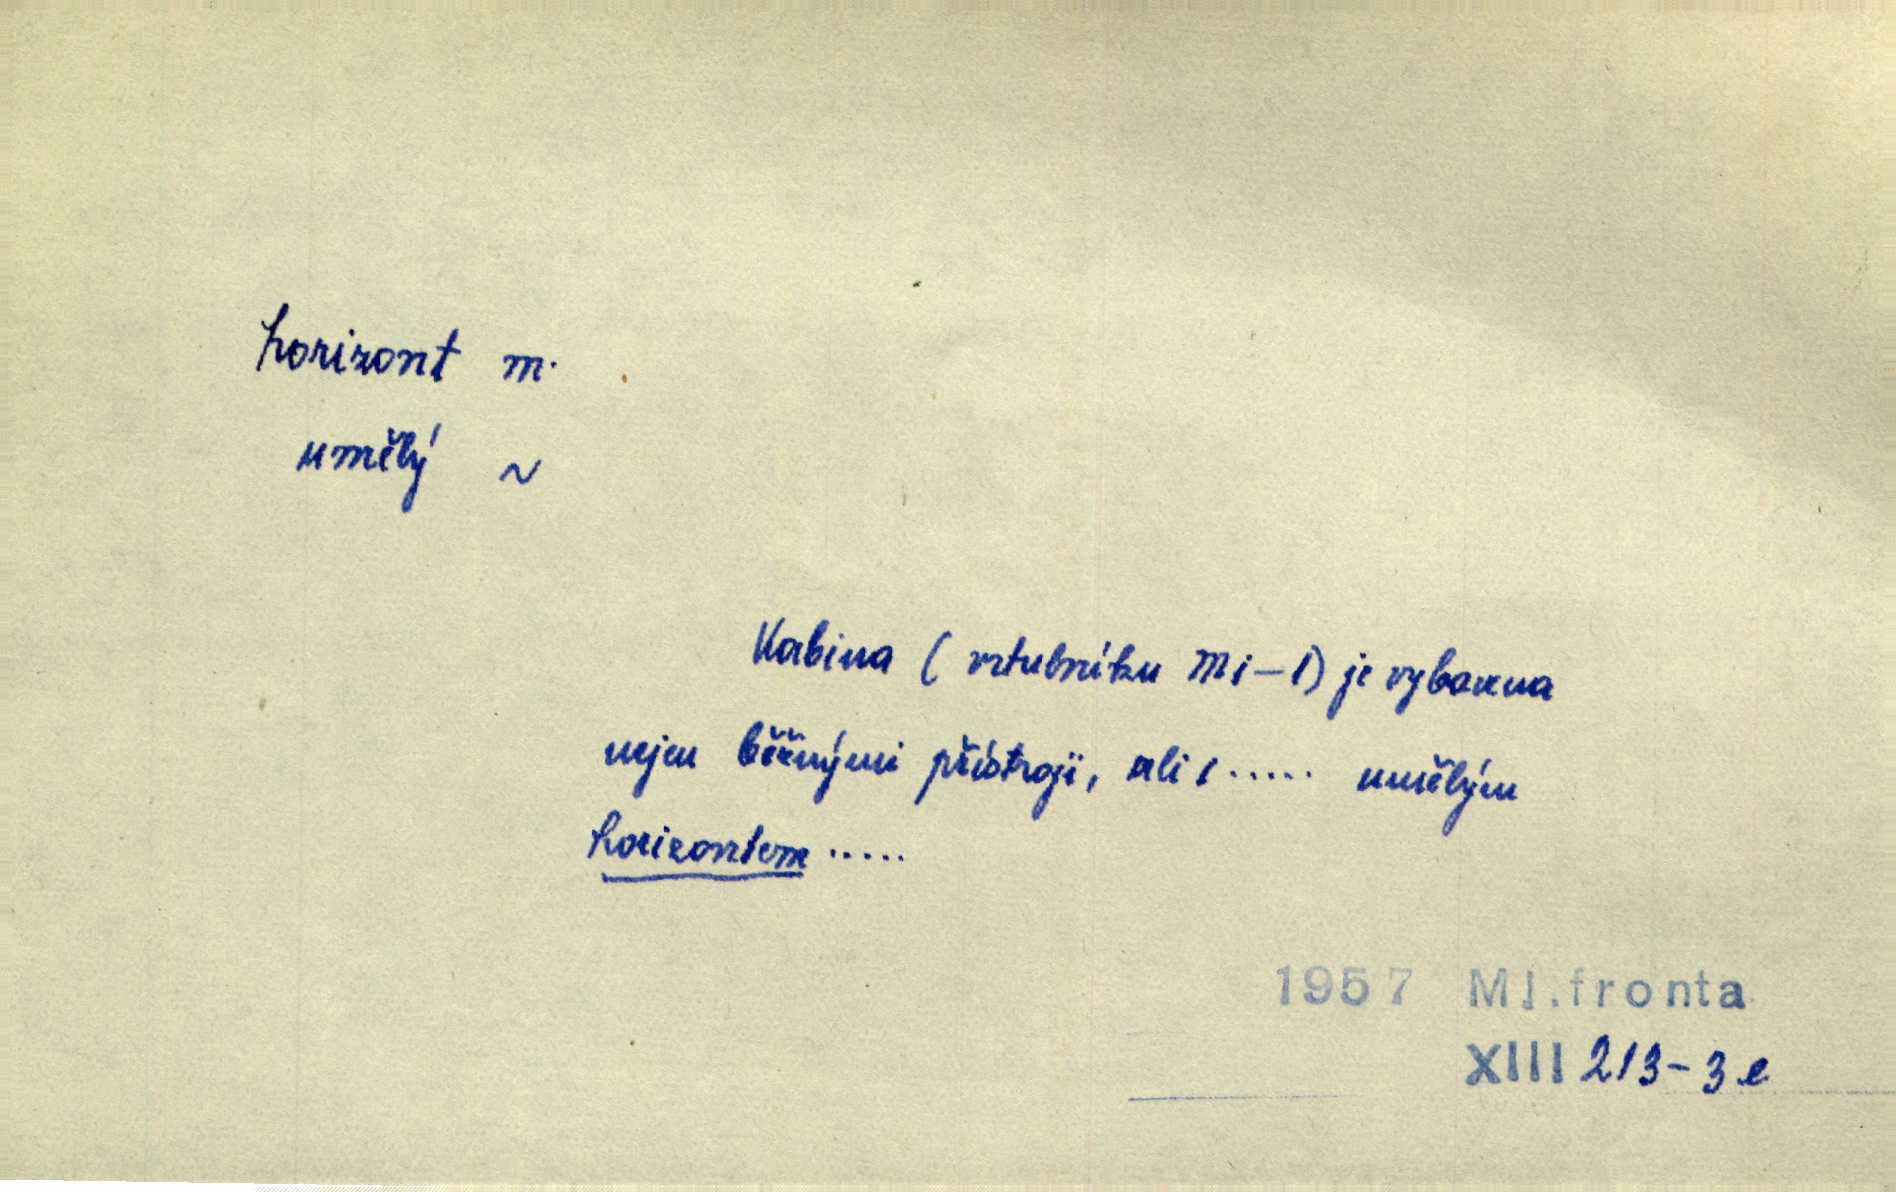 horizont m.
umělý ~
Kabina (vrtulníku Mi-1) je vybavena
nejen běžnými přístroji, ale i ..... umělým
horizontem .....
1957 Ml.fronta
XIII 213-3e